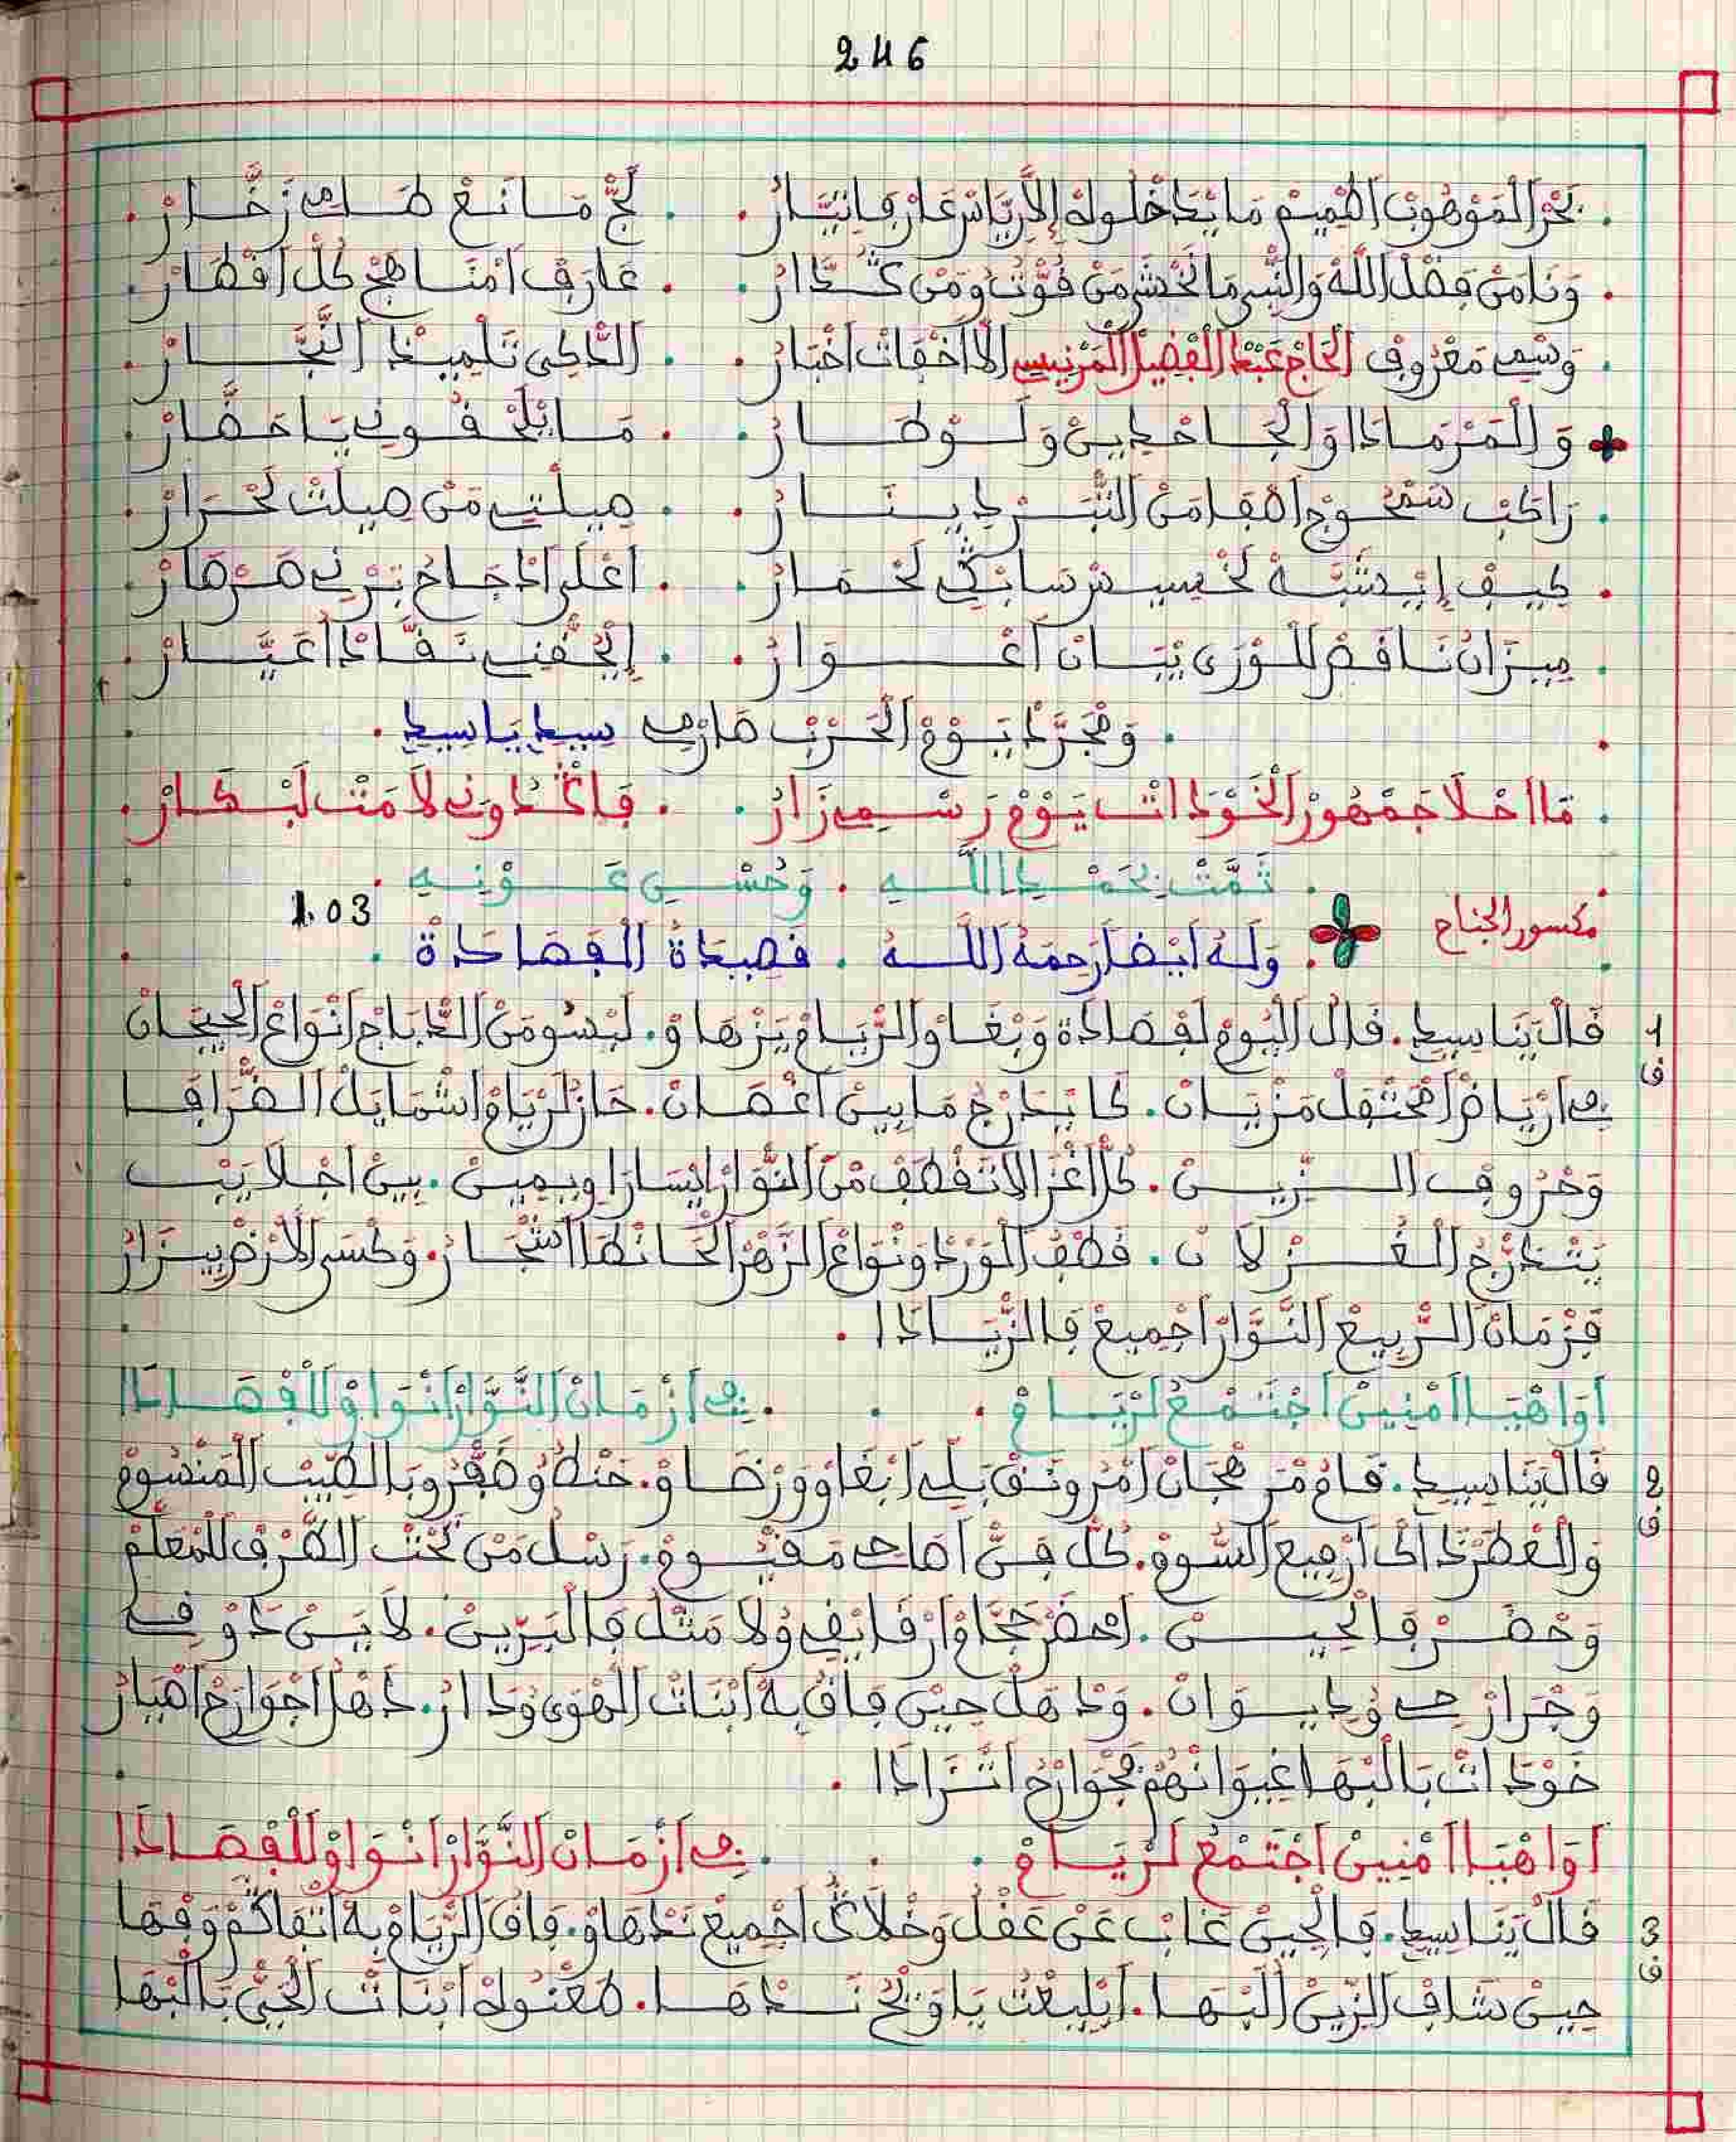 246
بَحْرْ الْمَوْهُوبْ اطْمِيمْ مَا يْدَخْلُوهْ إِلاَّ رْيَاسْ عَارْفَا تِيَّارْ . لَجّْ مَانَعْ طَامِي زَخَّارْ
وَنَا مَنْ فَضْلْ اللَّهْ وَالنّْبِي مَا نَخْشَى مَنْ قُوَّتْ وَمَنْ كَشْدَارْ . عَارَفْ امْنَاهَجْ كُلّْ اقْطَارْ
وَسْمِي مَعْرُوفْ الْحَاجْ عَبْدْ الْفْضِيلْ الْمَرْنِيسِي إِلاَ اخْفَاتْ اخْبَارْ . الدَّاكِي تَلْمِيدْ النَّجَّارْ
وَالْمَرْمَادَا وَالْجَاحْدِينْ وَلَوْطَارْ . مَا يْلَحْقُونِي يَا حَضَّارْ
رَاكَبْ سَمْحُوجْ اصْفَا مَنْ التّْبَرْ دِينَارْ . صِيلْتِي مَنْ صِيلْتْ لَحْرَارْ
كِيفْ إِيْشَبَّهْ لَخْسِيسْ سَابْكِي لَحْمَارْ . اعْلَى ادْجَاجْ بَرْنِي صَرْصَارْ
مِيزَانْ نَاقَصْ لَلْوْرَى يْبَانْ اعْوَارْ . إِلْحَقْنِي نَقَّادْ اعْيَارْ
وَمْجَرَّدْ يَوْمْ الْحَرْبْ صَارْمِي سِيدِ يَا سِيدِ
مَا احْلاَ جَمْهُورْ الْخَوْدَاتْ يَوْمْ رَسْمِي زَارْ . فَاكْدَاوَنِي لاَمَتْ لَبْكَارْ
ثَمَّتْ بِحَمْدِ اللَّهِ . وَحُسْنِ عَوْنِهِ
مكسور الجناح
1.03
وَلَهُ أَيْضاً رَحِمَهُ اللَّهُ . قَصِيدَةُ الْقَصَادَةْ
1
ف
قَالْ يَنَا سِيدِ . قَالْ الْيُومْ لَقْصَادَةْ وَبْغَاوْ الرّْيَامْ يَزْهَاوْ . لَبْسُو مَنْ الدِّبَاجْ انْوَاعْ الْحِيجَانْ
فِي ارْيَاضْ امْحَتْفَلْ مَزْيَانْ . كَا يَدْرَجْ مَا بِينْ اغْصَانْ . حَازْ لَرْيَامْ اشْمَايَلْ الضّْرَافَا
وَحْرُوفْ الزِّينْ . كُلّْ اغْزَالاَ تَقْطَفْ مَنْ النُّوَّارْ ايْسَارَا وِيمِينْ . بِينْ اجْلاَيَبْ
يَتْدَرَّجْ الْغُزْلاَنْ . قَطْفْ الْوَرْدْ وَنْوَاعْ الزّْهَرْ الْحَانْطَا اشْجَارْ . وَكْسَى الاَرْضْ بِيزَارْ
فَزْمَانْ الرّْبِيعْ النُّوَّارْ اجْمِيعْ فَالزّْيَادَا
أَوَاهْيَا امْنِينْ اجْتَمْعُ لَرْيَامْ . فِي ازْمَانْ النُّوَّارْ انْوَاوْ لَلْقْصَادَا
2
ف
قَالْ يَنَا سِيدِ . قَامُ مَرْهْجَانْ امْرَونَقْ بَلِّي ابْغَاوْ وَرْضَاوْ . خَنْطُو وَضَفْرُو بَالطِّيبْ الْمَنْسُومْ
وَالْعَطْرْ دَاكْ ارْفِيعْ السُّومْ . كُلّْ فَنّْ اصَاحْ مَقْيُومْ . رَسْلْ مَنْ تَحْتْ الطّْرَفْ لَلْمْعَلَّمْ
وَحْضَرْ فَالْحِينْ . احْضَرْ حَجَّامْ ارْقَايْقِي وُلاَ مَثْلُ فَالْبَرِّينْ . لاَيَنْ دَوْ فِي
وَجْرَارْحِي وُدِيوَانْ . وَدْهَلْ حِينْ فَاقْ بَهْ ابْنَاتْ الْهْوَى وُدَارْ . دَهْلْ اجْوَارْحُ اصْبَارْ
خَوْدَاتْ بَالْبْهَا غِيوَانْهُمْ فَجْوَارْحُ اتْرَادَا
أَوَاهْيَا امْنِينْ اجْتَمْعُ لَرْيَامْ . فِي ازْمَانْ النُّوَّارْ انْوَاوْ لَلْقْصَادَا
3
ف
قَالْ يَنَا سِيدِ . فَالْحِينْ غَابْ عَنْ عَقْلُ وَخْلاَكْ اجْمِيعْ نَدْهَاوْ . فَاقْ الرّْيَامْ بَهْ اتْفَاكْمْ وَفْهَا
حِينْ شَافْ الزِّينْ الْبْهَا . ابْلِيعْتُ يَا وَيْحْ نَدْهَا . طَعْنُوهْ ابْنَاتْ الْحَيّْ بَالْبْهَا